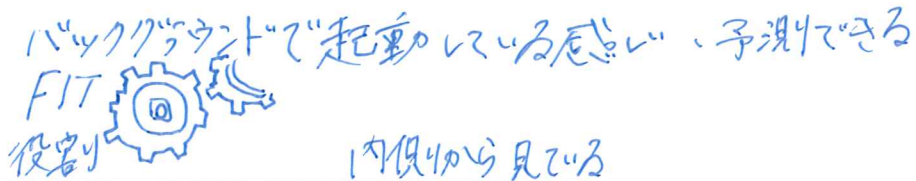 バックグラウンドで起動している感じ、予測できる
FIT
役割
内側から見ている